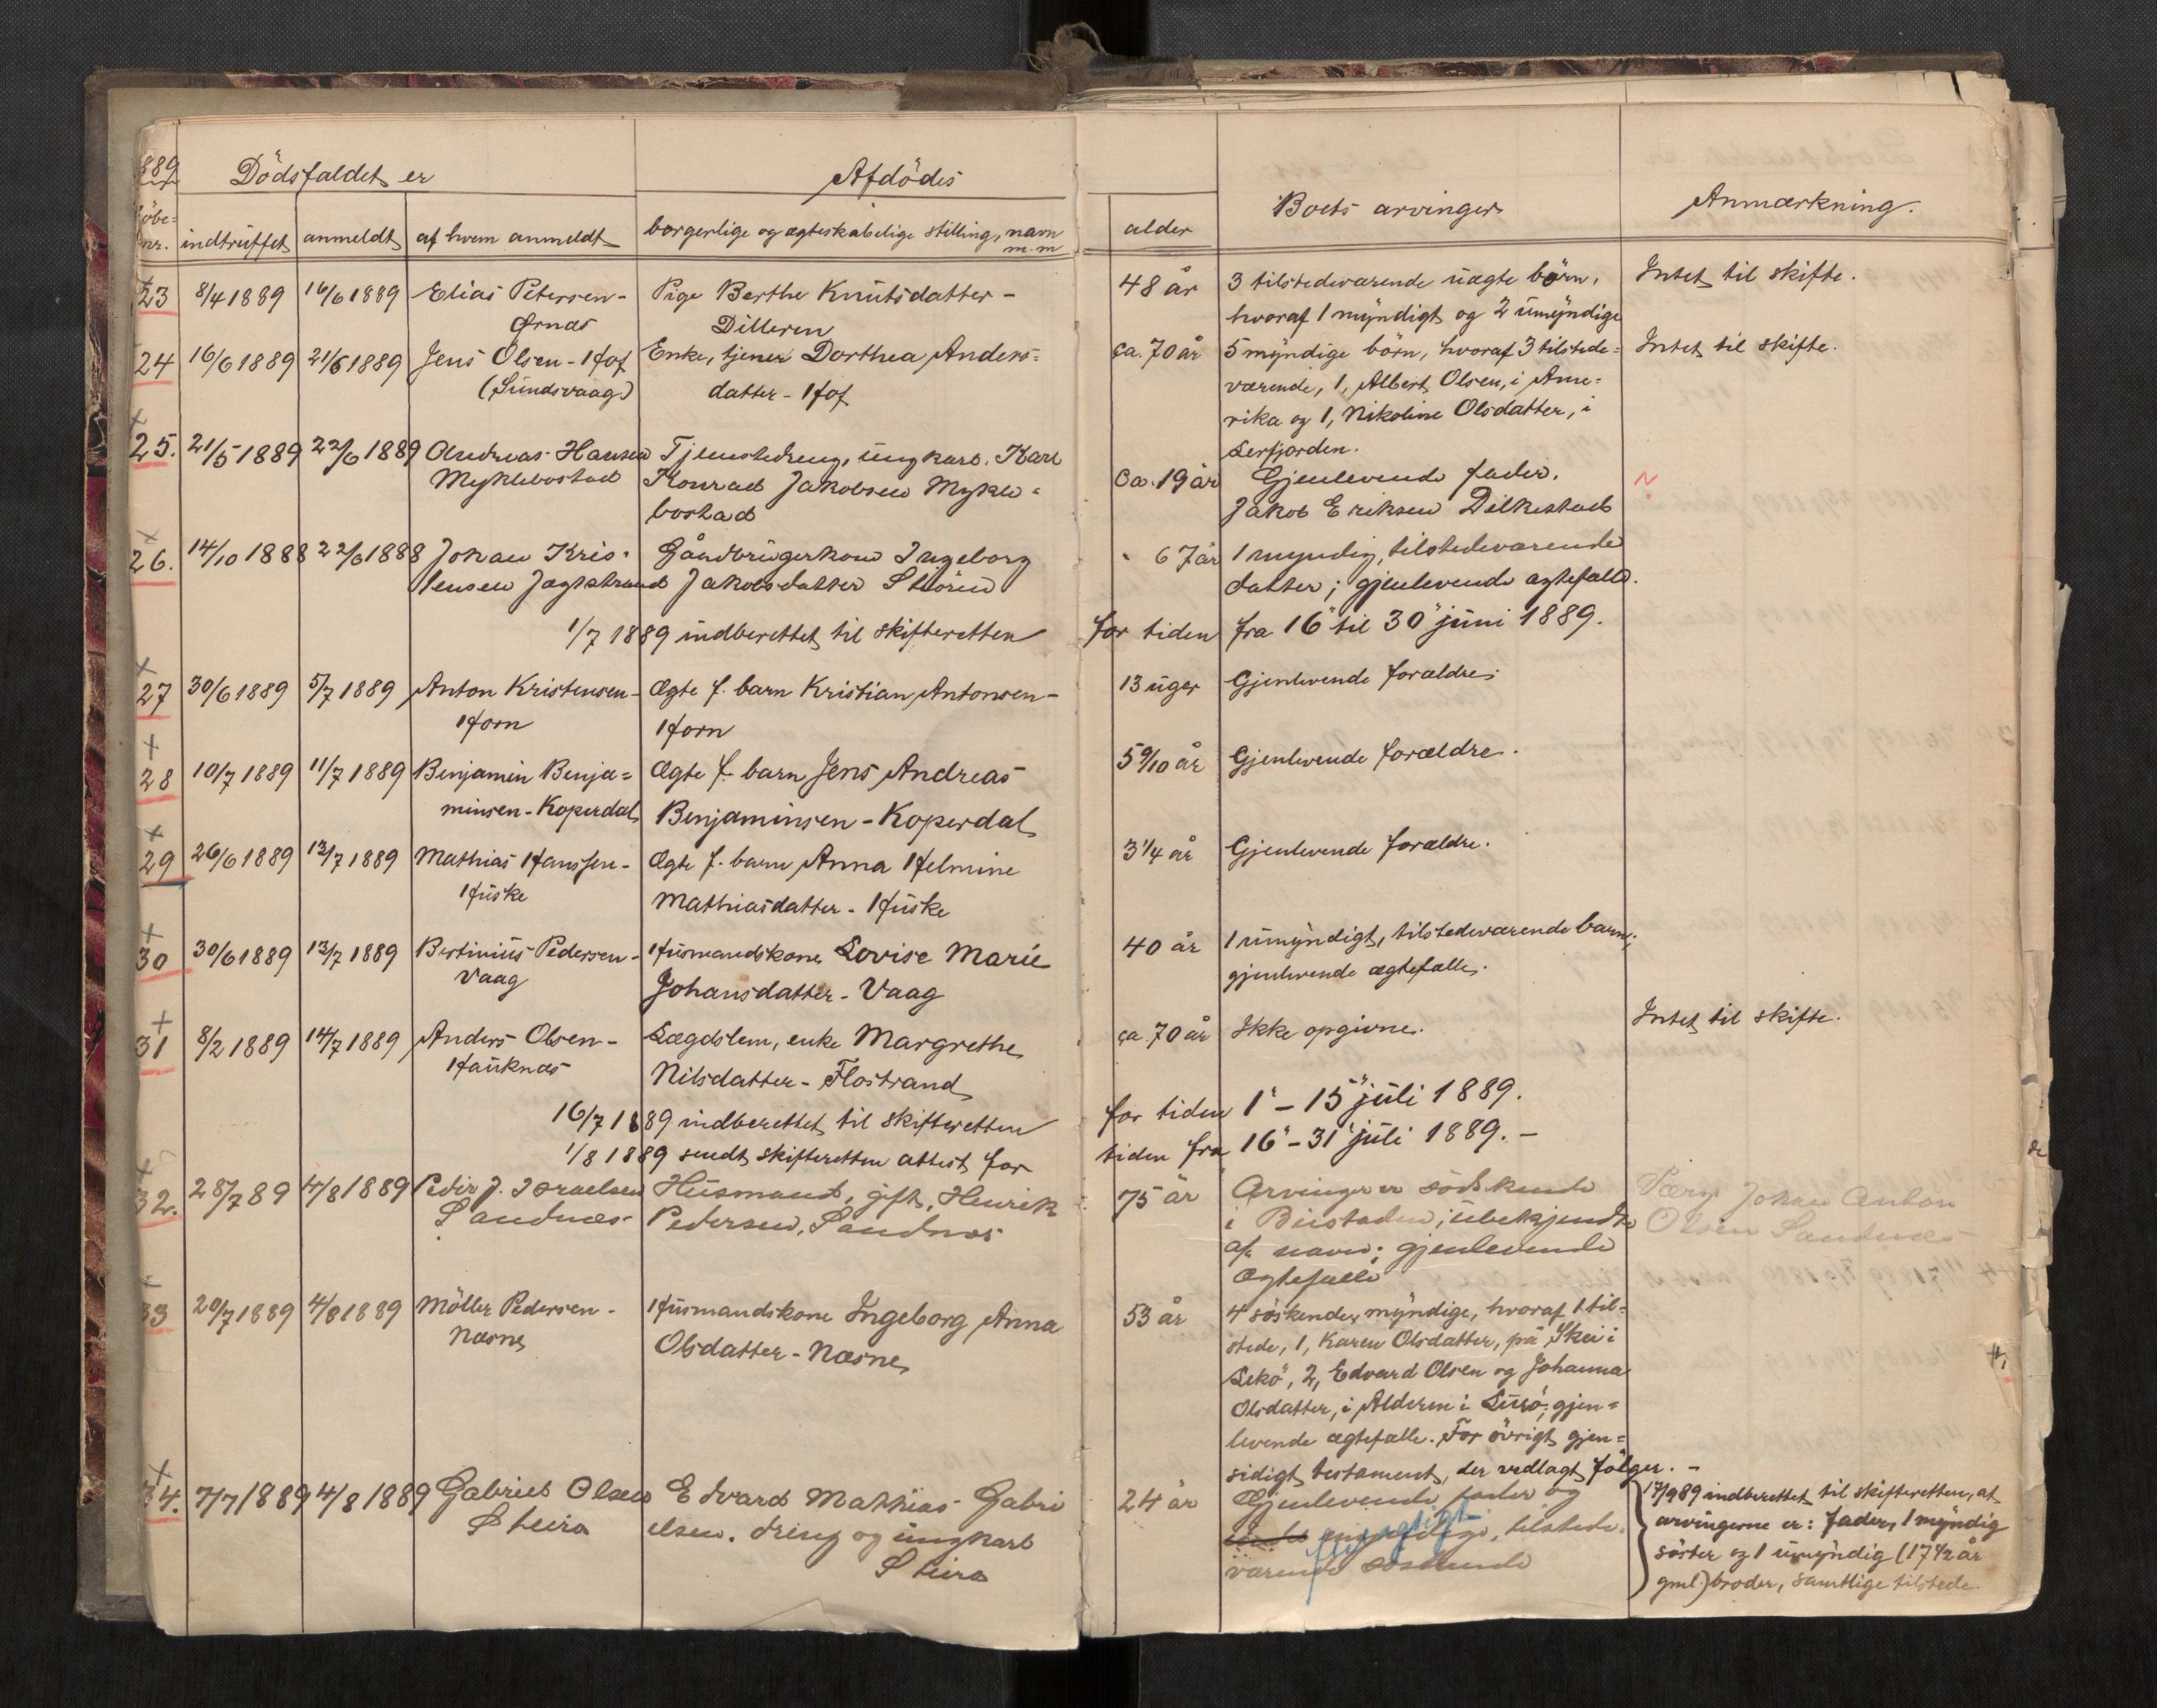 1889
Dödsfaldet er
Afdödes
Löbe-
nr.
indtruffet
anmeldt
af hvem anmeldt
borgerlige og ægteskabelige stilling, navn
m.m
alder
Boets arvinger
Anmærkning.
23 8/4 1889 16/6 1889 Elias Petersen- Pige Berthe Knutsdatter - 48 år 3 tilstedeværende uægte börn, Intet til skifte.
Ørnæs Dilleren hvoraf 1 myndigt og 2 umyndige
24 16/6 1889 21/6 1889 Jens Olsen - Hof Enke, tjener Dorthea Anders- ca. 70 år 5 myndige börn, hvoraf 3 tilstede- Intet til skifte.
(Sundsvaag) datter - Hof værende, 1, Albert Olsen, i Ame-
rika og 1, Nikoline Olsdatter, i
Serfjorden.
25. 21/5 1889 22/6 1889 Andreas Hansen Tjenstedreng, ungkarl. Karl ca. 19 år Gjenlevende fader.
Myklebostad Konrad Jakobsen Mykle- Jakob Eriksen Dilkestad
bostad
26. 14/10 1888 22/6 1888 Johan Kris- Gårdbrugerkone Ingeborg " 67 år 1 myndig, tilstedeværende
tensen Jægtstrand Jakobsdatter datter; gjenlevende ægtefælle.
1/7 1889 indberettet til skifteretten for tiden fra 16" til 30" juni 1889.
27 30/6 1889 5/7 1889 Anton Kristensen- Ægte f. barn Kristian Antonsen- 13 uger Gjenlevende forældre.
Horn Horn
28 10/7 1889 11/7 1889 Benjamin Benja- Ægte f. barn Jens Andreas 5 9/10 år Gjenlevende forældre.
minsen - Koperdal Benjaminsen - Koperdal
29 26/6 1889 12/7 1889 Mathias Hanssen- Ægte f. barn Anna Helmine 3 1/4 år Gjenlevende forældre.
Huske Mathiasdatter - Huske
30 30/6 1889 13/7 1889 Bertinius Pedersen- Husmandskone Lovise Marie 40 år 1 umyndigt, tilstedeværende barn;
Vaag Johansdatter - Vaag gjenlevende ægtefælle.
31 8/2 1889 14/7 1889 Anders Olsen- Lægdslem, enke Margrethe ca. 70 år Ikke opgivne. Intet til skifte.
Hauknæs Nilsdatter - Flostrand
16/7 1889 indberettet til skifteretten for tiden 1" - 15" juli 1889.
1/8 1889 sendt skifteretten attest for tiden fra 16" - 31" juli 1889. -
32. 28/7 89 4/8 1889 Peder J. Israelsen Husmand, gift, Henrik 75 år Arvinger er södskende Johan Anton
Sandnæs Pedersen, Sandnæs i Bustaden; ubekjendte Olsen Sandnæs
af navn; gjenlevende
Ægtefælle
33 20/7 1889 4/8 1889 Möller Pedersen - Husmandskone Ingeborg Anna 53 år 4 söskende, myndige, hvoraf 1 til-
Næsne Olsdatter - Næsne stede, 1, Karen Olsdatter, på Skei i
Lekö, 2, Edvard Olsen og Johanna
Olsdatter, i Alderen i Lurö; gjen-
levende ægtefælle. For övrigt gjen-
sidigt testament, der vedlagt fölger. -
34. 7/7 1889 4/8 1889 Gabriel Olsen Edvard Mathias Gabri 24 år Gjenlevende fader og 17/9 89 indberettet til skifteretten, at
Sleira elsen. dreng og ungkarl tilstede- arvingerne er: fader, 1 myndig
Sleira værende söskende söster og 1 umyndig (17 1/2 år
gml) broder, samtlige tilstede.